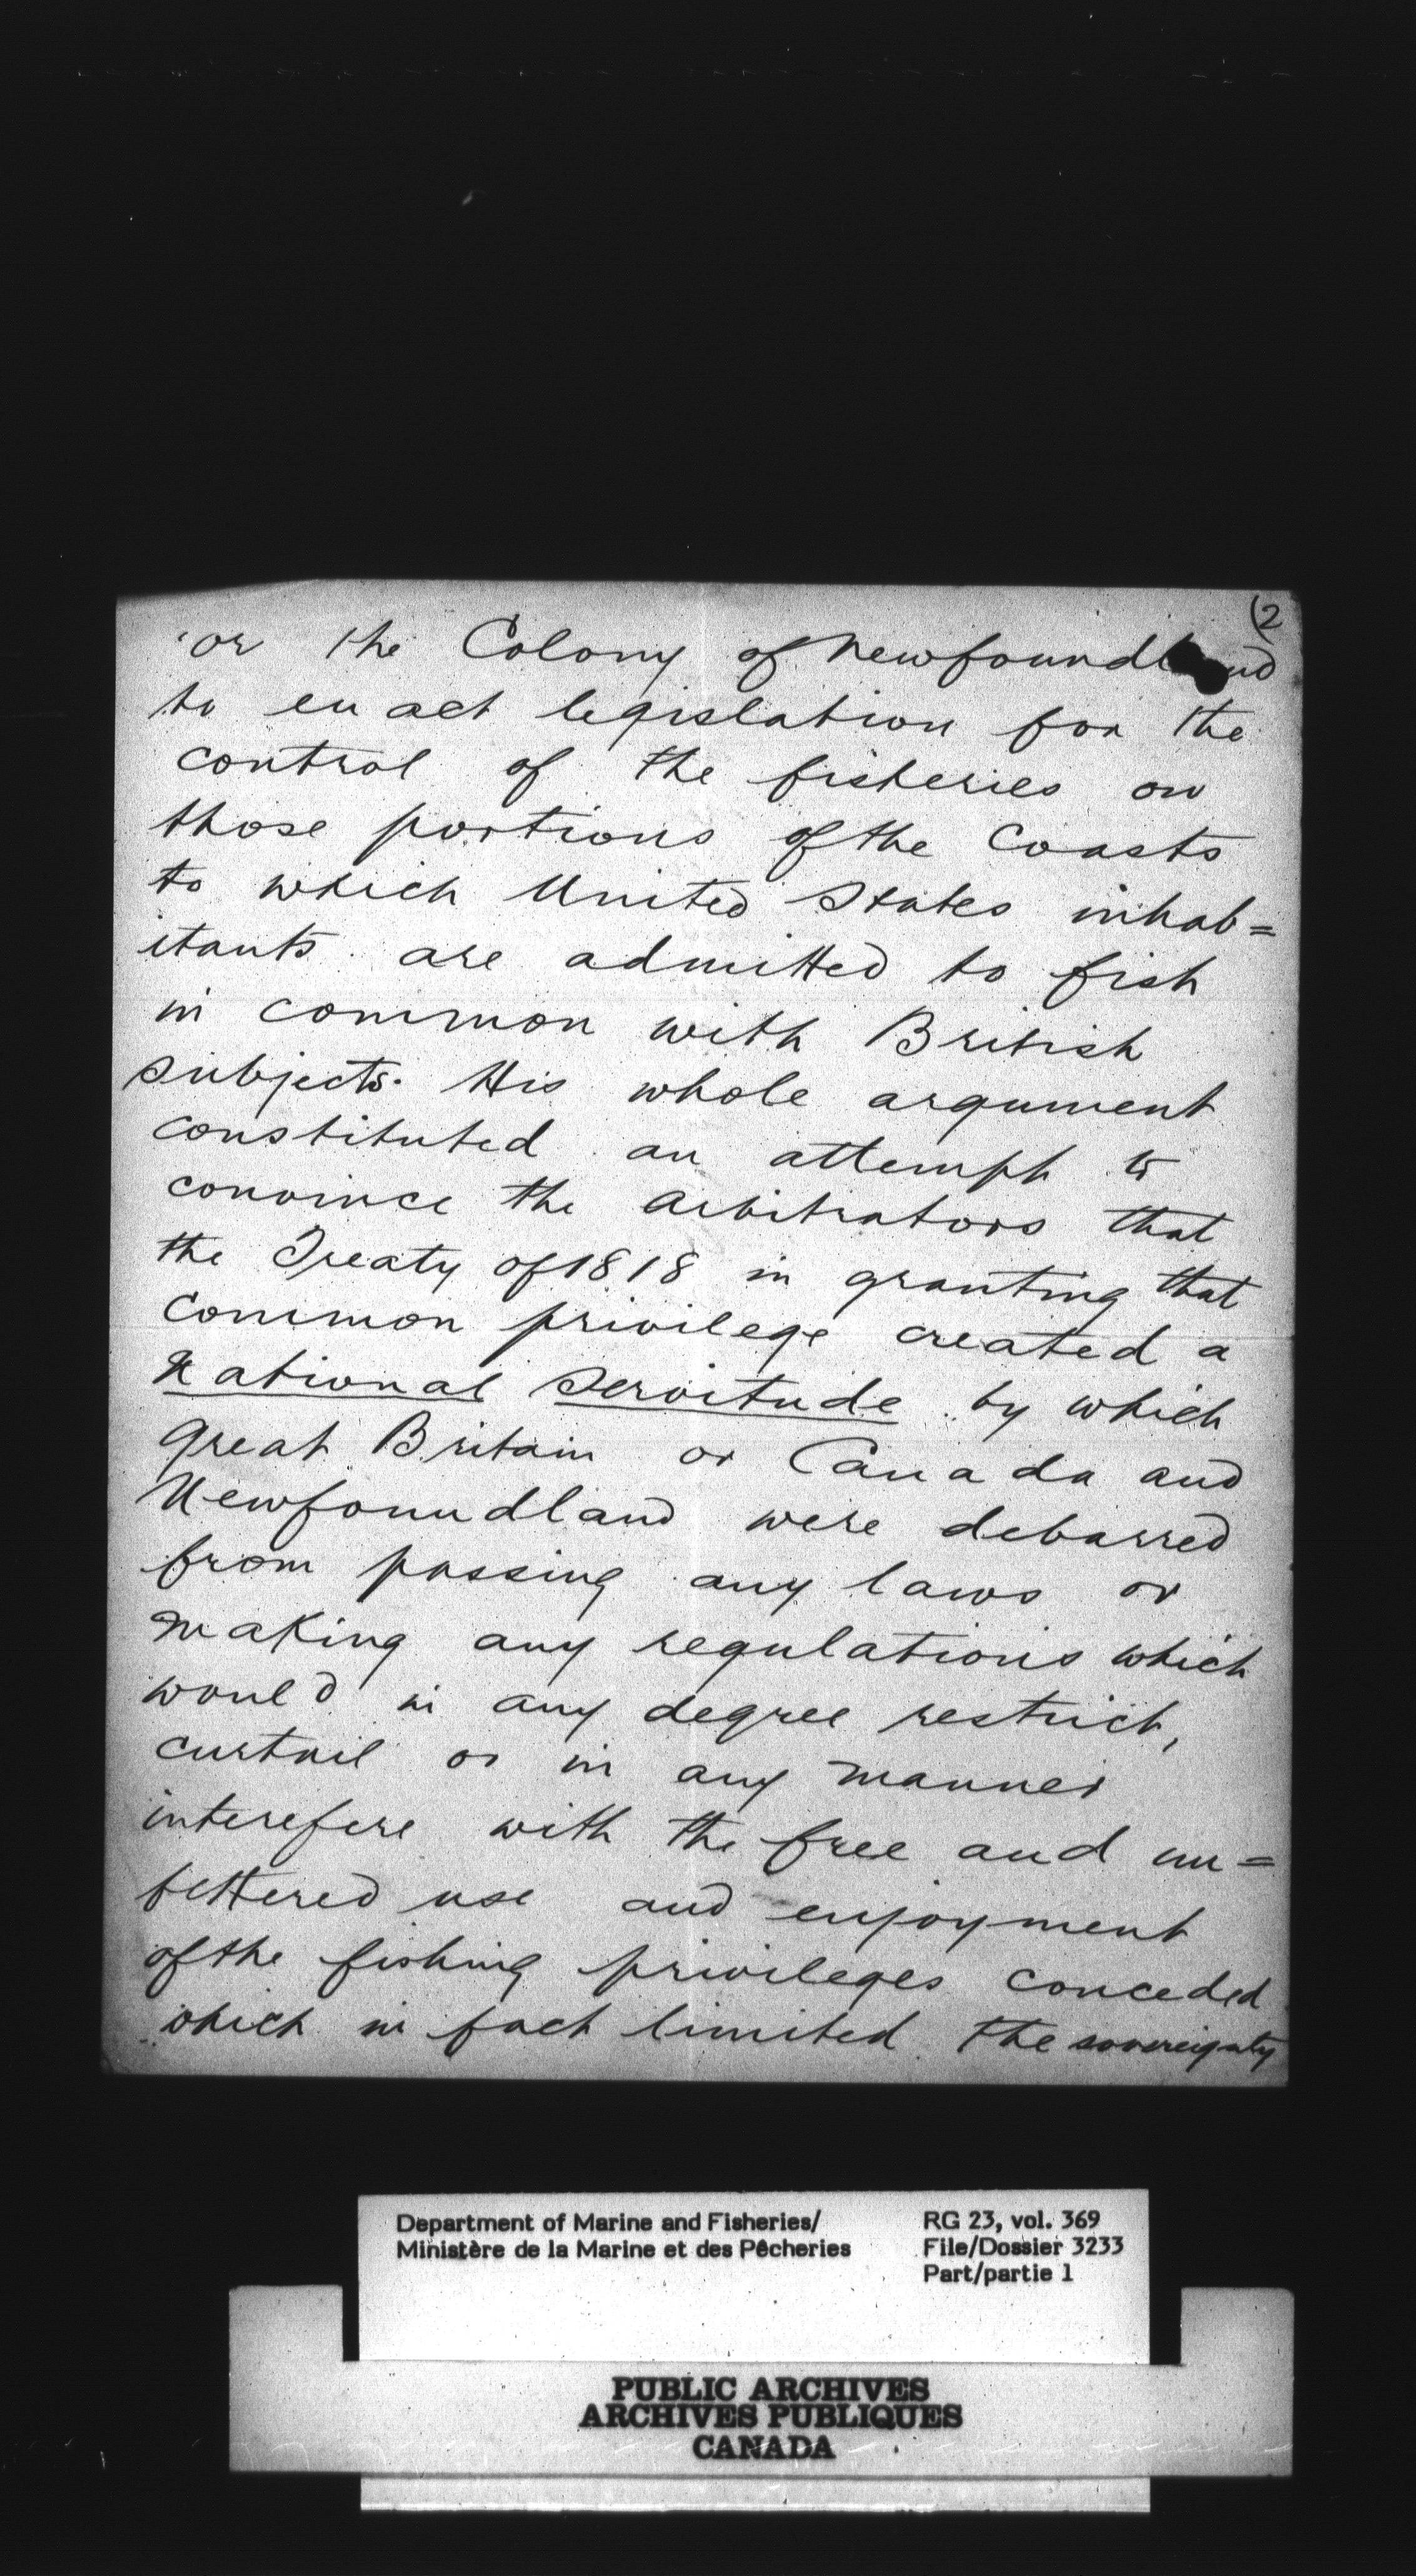 (2
or the Colony of Newfoundland
to enact legislation for the
control of the fisheries on
those portions of the Coasts
to which United States inhab=
itants are admitted to fish
in common with British
subjects. His whole argument
constituted an attempt to
convince the Arbitrators that
the Treaty of 1818 in granting that
common privilege created a
National Servitude by which
Great Britain or Canada and
Newfoundland were debarred
from passing any laws or
making any regulations which
would in any degree restrict,
curtail or in any manner
interefere with the free and un=
fettered use and enjoyment
of the fishing privileges conceded
which in fact limited the sovereignty
Department of Marine and Fisheries/
Ministère de la Marine et des Pêcheries
RG 23, vol. 369
File/Dossier 3233
Part/partie 1
PUBLIC ARCHIVES
ARCHIVES PUBLIQUES
CANADA